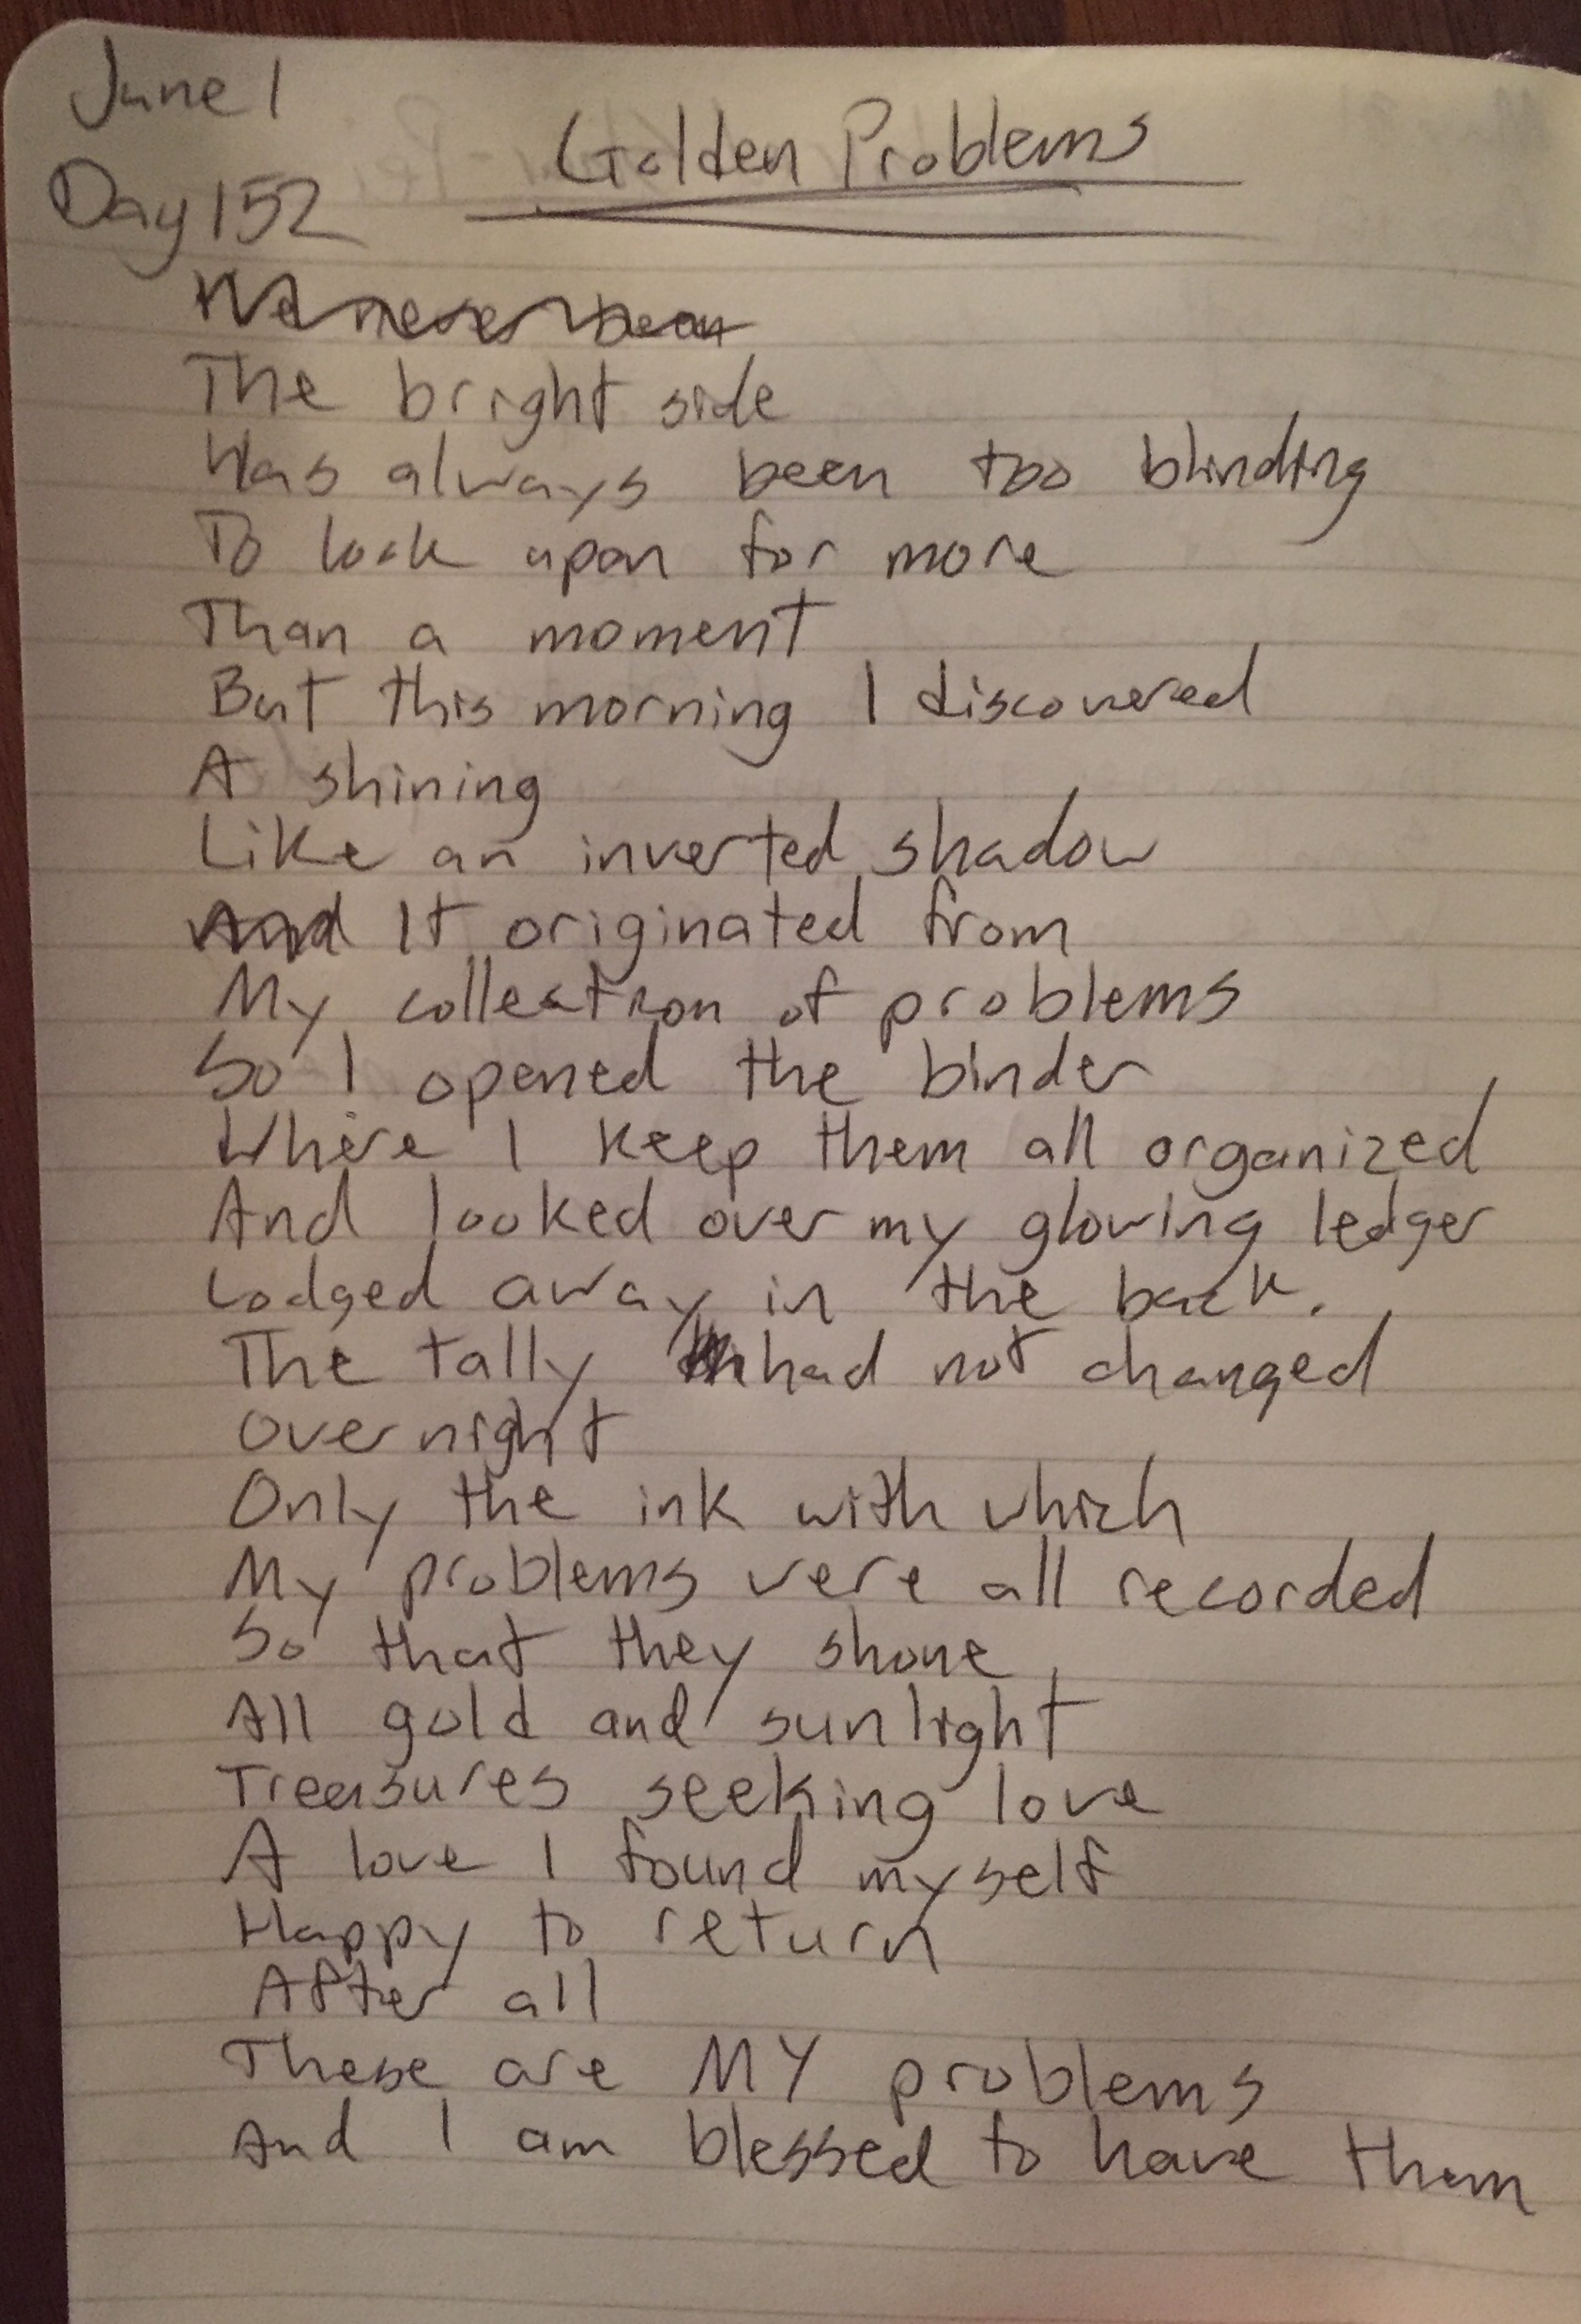 June 1
Golden Problems
Day 152
The bright side
Has always been too blinding
To look upon for more
Than a moment
But this morning I discovered
A shining
Like an inverted shadow
And It originated from
My collection of problems
So I opened the binder
Where I keep them all organized
And looked over my glowing ledger
Lodged away in the back.
The tally had not changed
Overnight
Only the ink with which
My problems were all recorded
So that they shone
All gold and sunlight
Treasures seeking love
A love I found myself
Happy to return
After all
These are MY problems
And I am blessed to have them